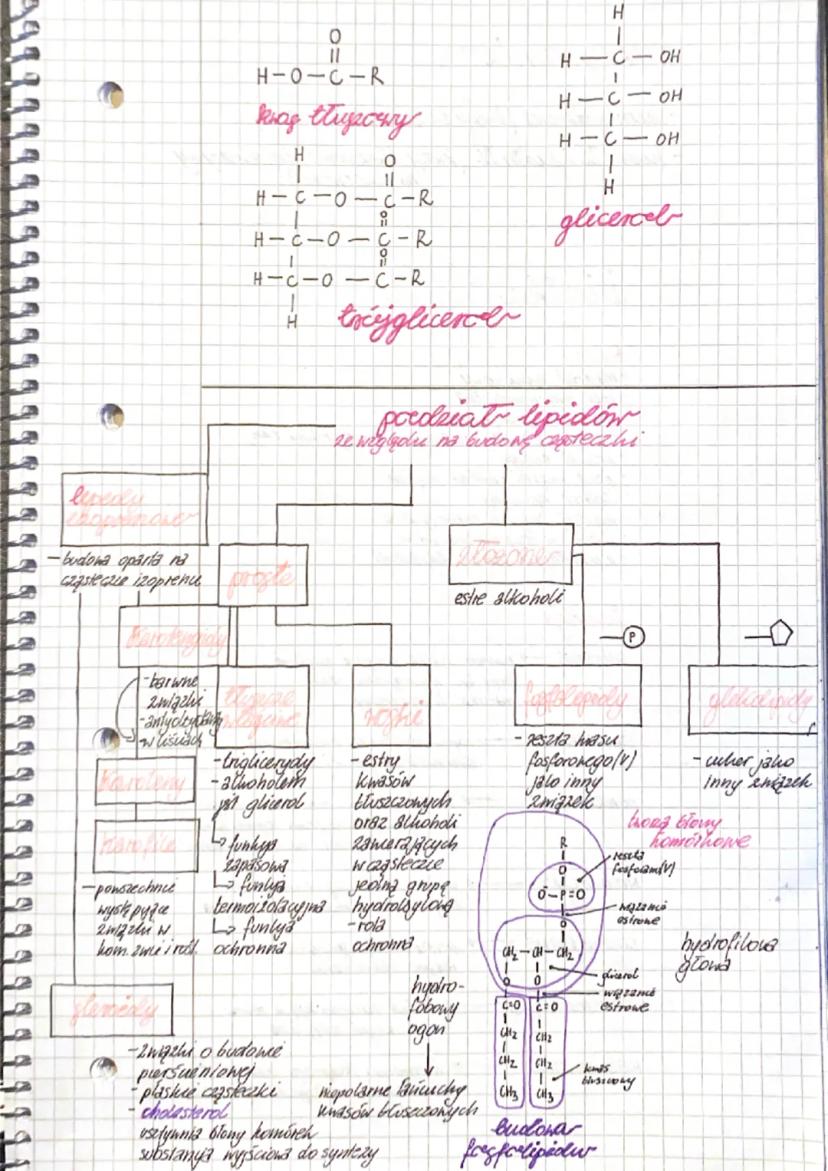 O
H-O-C-R
kwas tłuszczowy
H
H-C-OH
H-C-OH
H-C-OH
H
glicerol
H O
H-C-O-C-R
O
H-C-O-C-R
O
H-C-O-C-R
H
trójglicerol
podział lipidów
ze względu na budowę cząsteczki
lipidy
izoprenowe
- budowa oparta na
cząsteczce izoprenu
proste
złożone
estre alkoholi
P
karotenoidy
- barwne
związki
- antyoksydanty
w liściach
karoteny
- powszechnie
występujące
związki w
kom. zwie i rośl.
tłuszcze
właściwe
- triglicerydy
- alkoholem
jest glicerol
funkcja
zapasowa
funkcja
termoizolacyjna
funkcja
ochronna
woski
- estry
kwasów
tłuszczowych
oraz alkoholi
zawierających
w cząsteczce
jedną grupę
hydroksylową
- rola
ochronna
fosfolipidy
- reszta kwasu
fosforowego(V)
jako inny
związek
glikolipidy
- cukier jako
inny związek
tworzą błony
komórkowe
R
O
O⁻-P=O
O
CH₂-CH-CH₂
O O
C=O C=O
CH₂ CH₂
CH₂ CH₂
CH₃ CH₃
reszta
fosforam(V)
wiązanie
estrowe
glicerol
wiązanie
estrowe
kwas
tłuszczowy
hydrofilowa
głowa
hydro-
fobowy
ogon
niepolarne łańcuchy
kwasów tłuszczowych
budowa
fosfolipidu
steroidy
- związki o budowie
pierścieniowej
- płaskie cząsteczki
- cholesterol
usztywnia błony komórek
substancja wyjściowa do syntezy